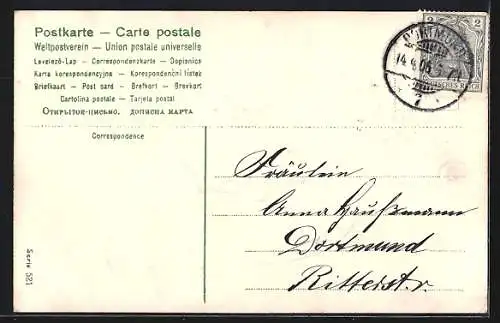 Postkarte — Carte postale
Weltpostverein — Union postale universelle
Levelező-Lap — Correspondenzkarte — Dopisnice
Karta korespondencyjna — Korespondenční lístek
Briefkaart — Post card — Brefkort — Brevkort
Cartolina postale — Tarjeta postal
Открытое письмо. дописна карта
Correspondence
2 2
DORTMUND
14.4.06.
7
Fräulein
Anna Haußmann
Dortmund
Ritterstr.
Serie 521